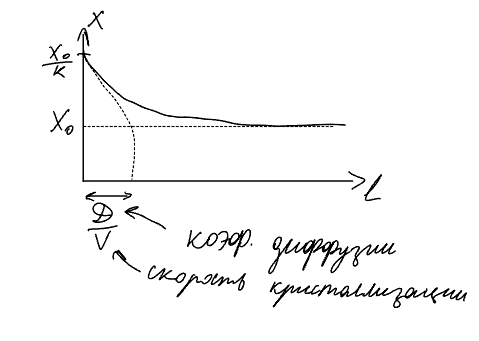 X
X₀/K
X₀
L
D/V
коэф. диффузии
скорость кристаллизации